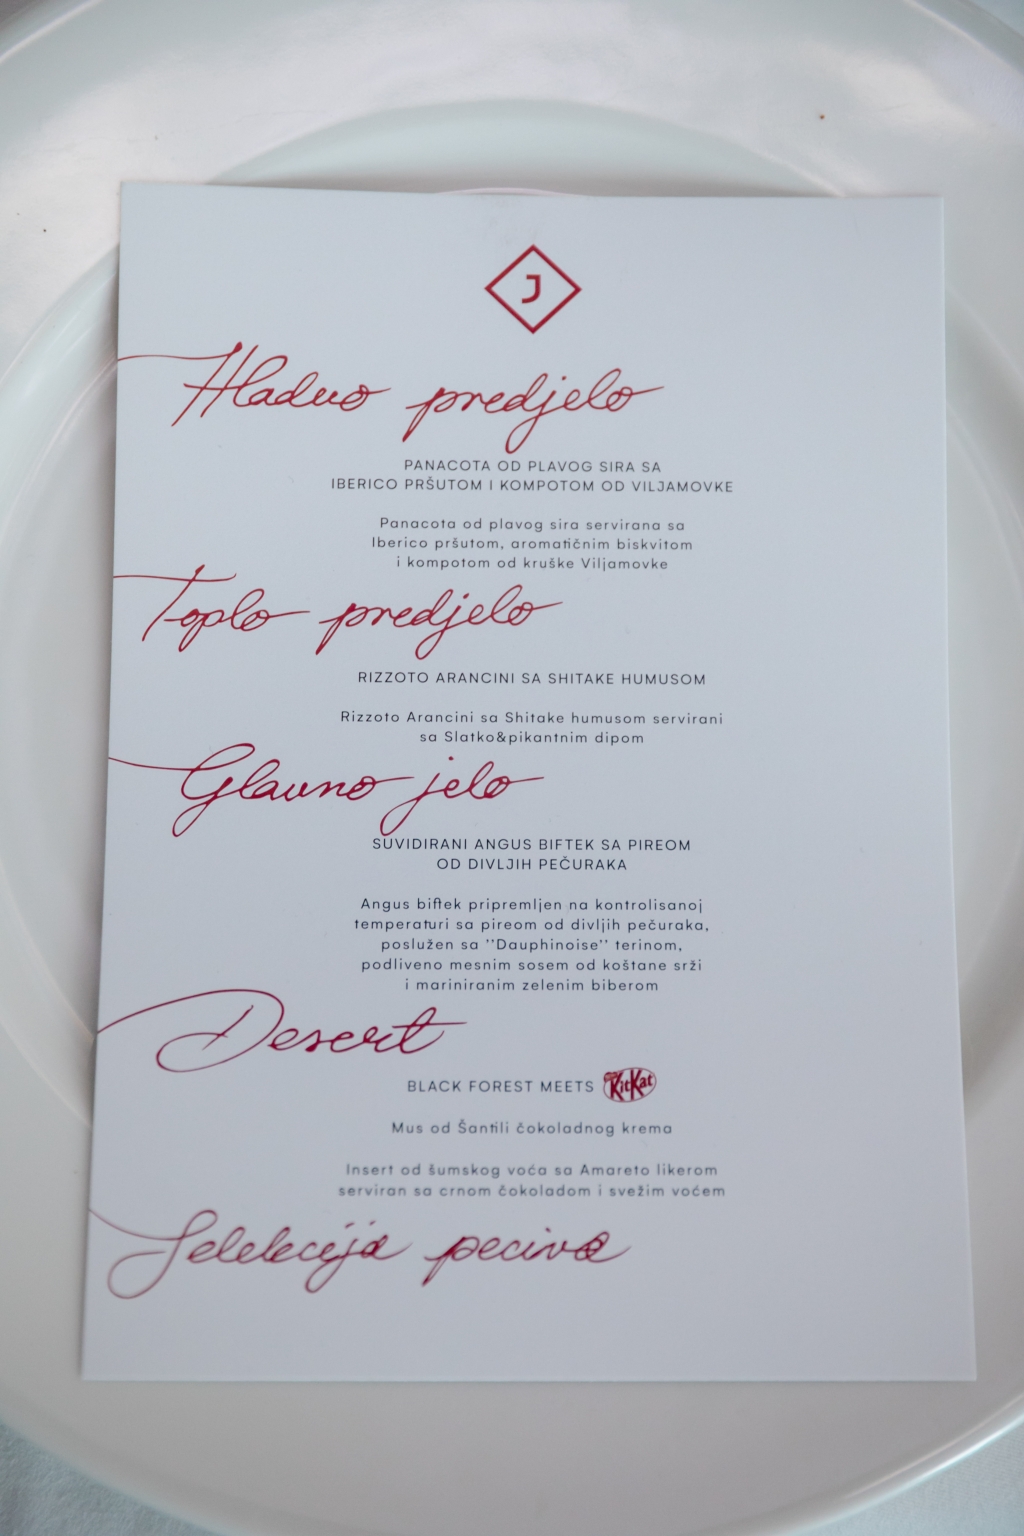 J
Hladno predjelo
PANACOTA OD PLAVOG SIRA SA
IBERICO PRŠUTOM I KOMPOTOM OD VILJAMOVKE
Panacota od plavog sira servirana sa
Iberico pršutom, aromatičnim biskvitom
i kompotom od kruške Viljamovke
Toplo predjelo
RIZZOTO ARANCINI SA SHITAKE HUMUSOM
Rizzoto Arancini sa Shitake humusom servirani
sa Slatko&pikantnim dipom
Glavno jelo
SUVIDIRANI ANGUS BIFTEK SA PIREOM
OD DIVLJIH PEČURAKA
Angus biftek pripremljen na kontrolisanoj
temperaturi sa pireom od divljih pečuraka,
poslužen sa ''Dauphinoise'' terinom,
podliveno mesnim sosem od koštane srži
i mariniranim zelenim biberom
Desert
BLACK FOREST MEETS KitKat
Mus od Šantili čokoladnog krema
Insert od šumskog voća sa Amareto likerom
serviran sa crnom čokoladom i svežim voćem
Selekcija peciva